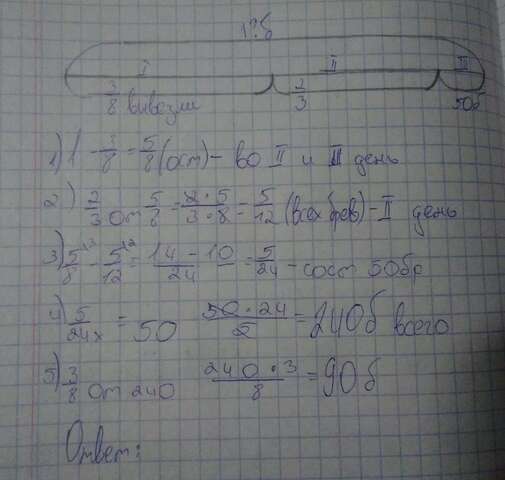 1?б
I II III
3/8 вывезли 2/3 50б
1) 1 - 3/8 = 5/8 (ост) - во II и III день
2) 2/3 от 5/8 = 2·5/3·8 = 5/12 (всех брев) - II день
3) 5/8 - 5/12 = 14-10/24 = 5/24 - сост 50бр
4) 5/24x = 50 50·24/5 = 240б всего
5) 3/8 от 240 240·3/8 = 90б
Ответ: